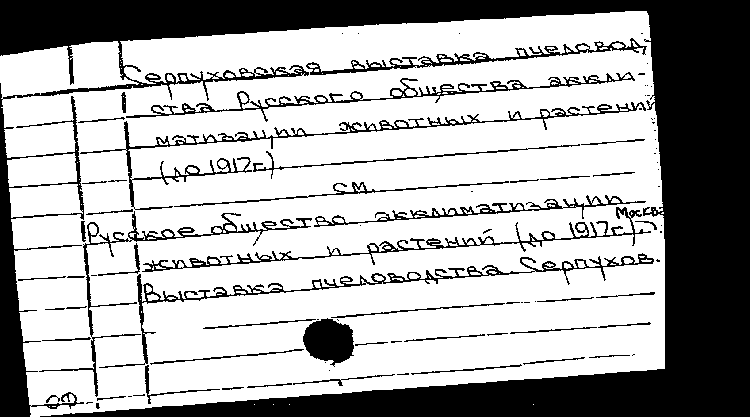 Серпуховская выставка пчеловод-
ства Русского общества аккли-
матизации животных и растений
(до 1917г.).
см.
Русское общество акклиматизации
животных и растений (до 1917г.). Москва
Выставка пчеловодства. Серпухов.
ОФ